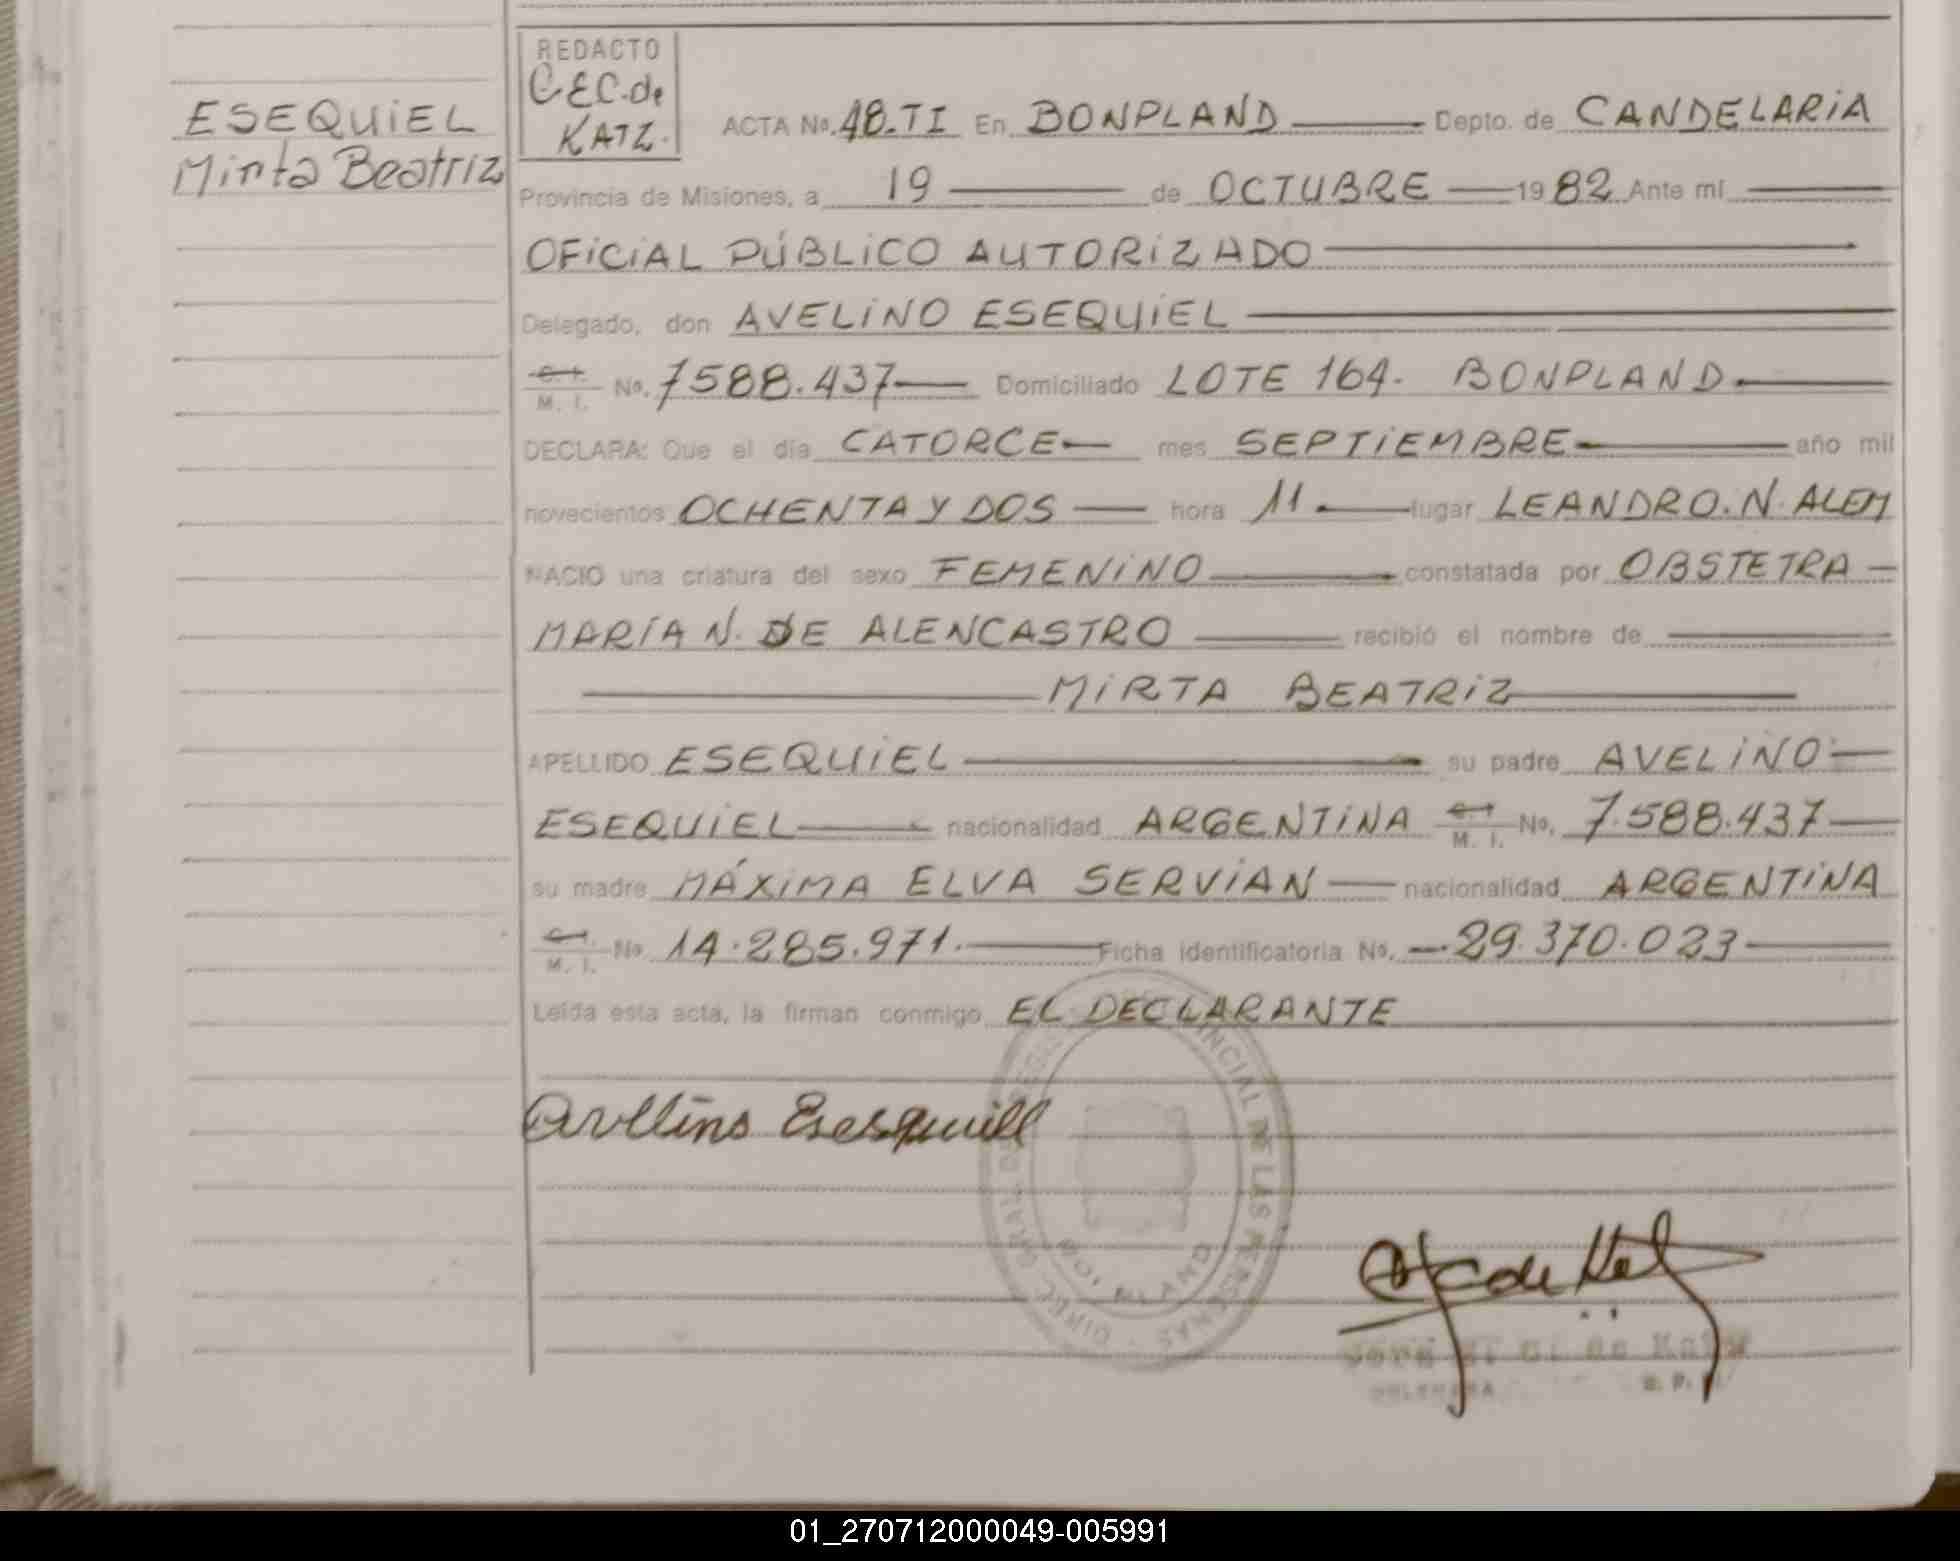 ESEQUIEL
Mirta Beatriz
REDACTO
C EC. de
KATZ.
ACTA No. 48. TI En BONPLAND Depto. de CANDELARIA
Provincia de Misiones, a 19 de OCTUBRE 1982 Ante mí
OFICIAL PÚBLICO AUTORIZADO
Delegado, don AVELINO ESEQUIEL
C. I. M. I. No. 7588.437 Domiciliado LOTE 164. BONPLAND
DECLARA: Que el día CATORCE mes SEPTIEMBRE año mil
novecientos OCHENTA Y DOS hora 11 lugar LEANDRO. N. ALEM
NACIO una criatura del sexo FEMENINO constatada por OBSTETRA
MARÍA N. DE ALENCASTRO recibió el nombre de
MIRTA BEATRIZ
APELLIDO ESEQUIEL su padre AVELINO
ESEQUIEL nacionalidad ARGENTINA C. I. M. I. No. 7.588.437
su madre MÁXIMA ELVA SERVIAN nacionalidad ARGENTINA
C. I. M. I. No 14.285.971. Ficha identificatoria No. 29.370.023
Leída esta acta, la firman conmigo EL DECLARANTE
Avellino Esesquiell
DE LAS PERSONAS
DIREC. GRAL.
de Katz
01_270712000049-005991